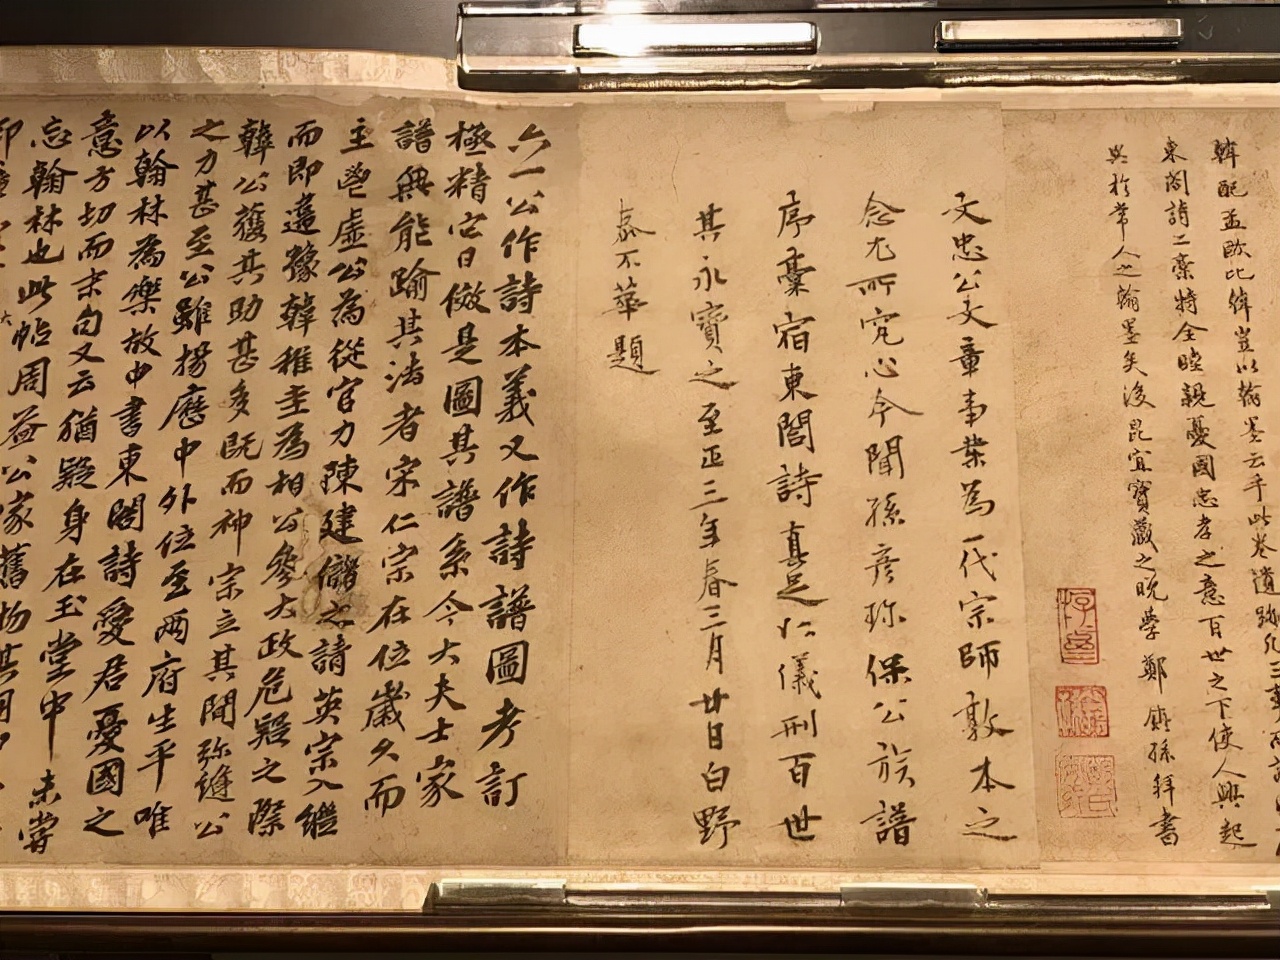 韓配孟歐比韓豈以翰墨云乎此卷遺跡凡三
東閣詩二稾特全睦親憂國忠孝之意百世之下使人興起
與於常人之翰墨矣後昆宜寶藏之晚學鄭 孫拜書
文忠公文章事業為一代宗師敦本之
念尤所究心今聞孫彦珎保公族譜
序稾宿東閣詩真足以儀刑百世
其永寶之至正三年春三月廿日白野
泰不華題
六一公作詩本義又作詩譜圖考訂
極精它日倣是圖其譜系今大夫士家
譜無能踰其法者宋仁宗在位歲久而
主鬯虛公為從官力陳建儲之請英宗入繼
而即違豫韓稚圭為相公參大政危疑之際
韓公獲其助甚多既而神宗立其間弥縫公
之力甚至公雖揚歷中外位至兩府生平唯
以翰林為樂故中書東閣詩愛君憂國之
意方切而末句又云猶疑身在玉堂中未嘗
忘翰林也此帖周益公家舊物其